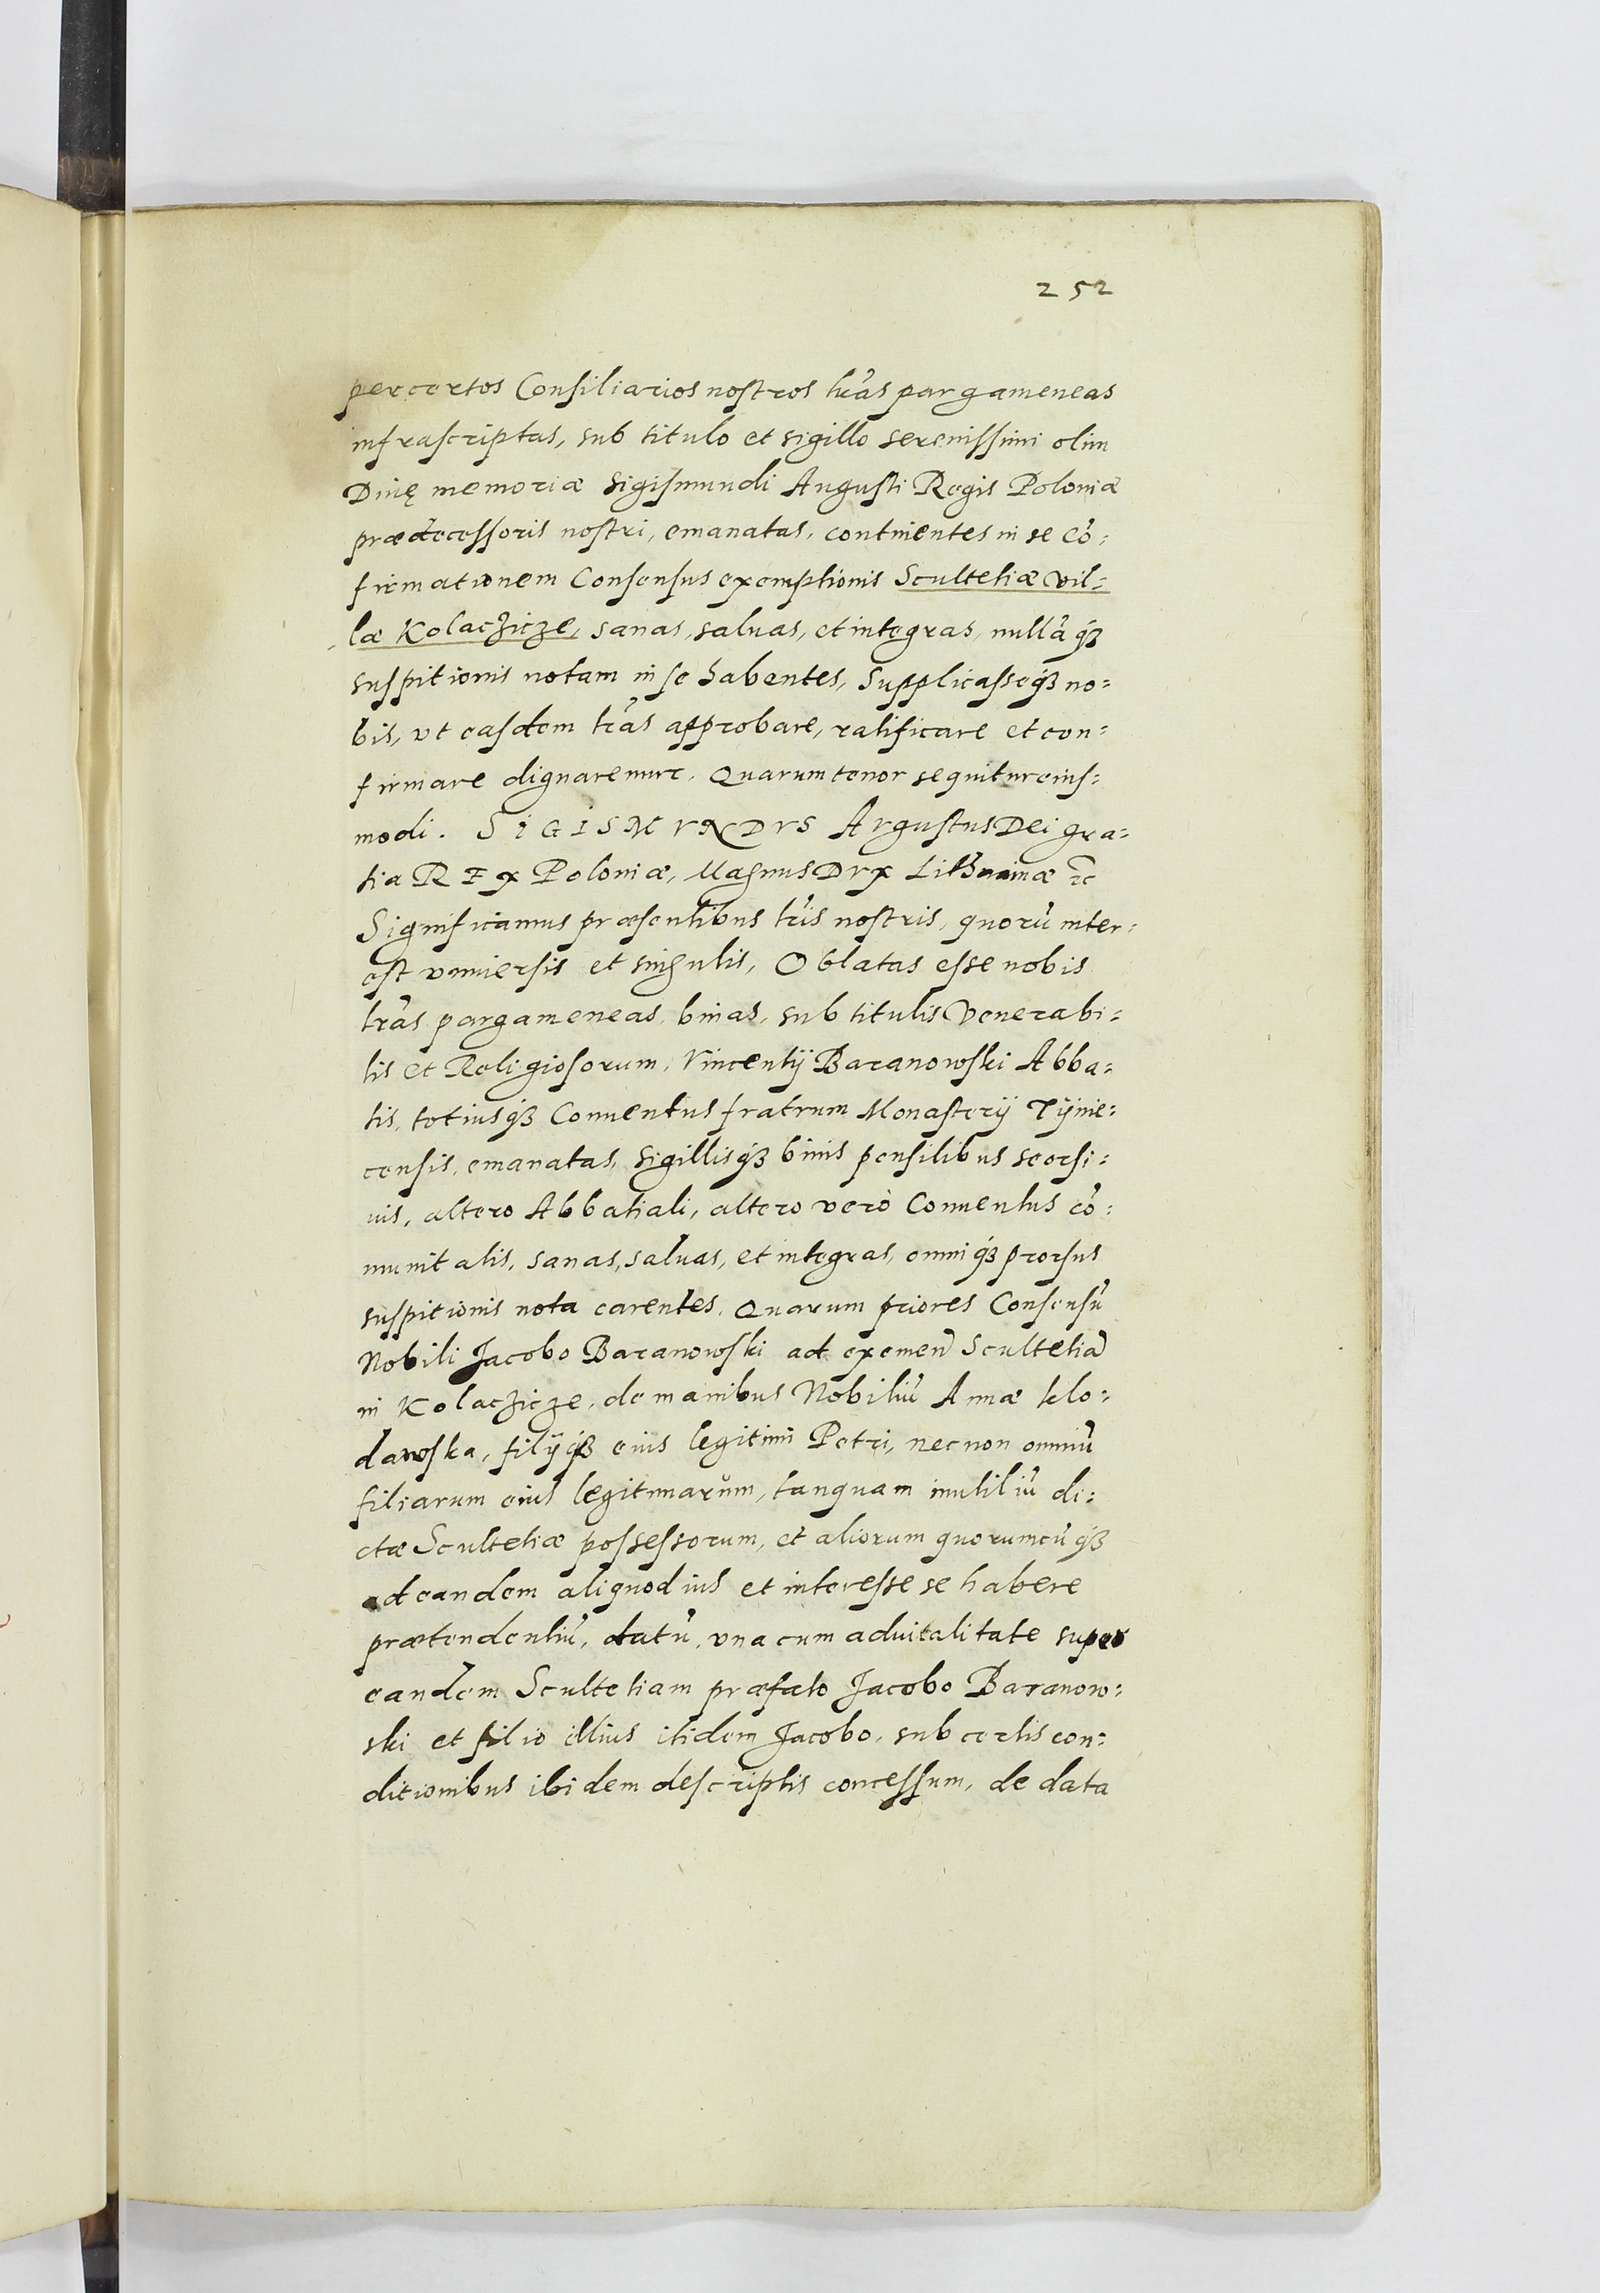 252
per certos Consiliarios nostros lr̃as pargameneas
infrascriptas, sub titulo et sigillo serenissimi olim
Diuę memoriæ Sigismundi Augusti Regis Poloniæ
prædecessoris nostri, emanatas, continentes in se cõ=
firmationem Consensus exemptionis Scultetiæ vil=
læ Kolaczicze, sanas, saluas, et integras, nullãq́ꝫ
suspitionis notam in se habentes, Supplicasseq́ꝫ no=
bis, vt easdem lr̃as approbare, ratificare et con=
firmare dignaremur. Quarum tenor sequitur eius=
modi. SIGISMVNDVS AVgustus Dei gra=
tia REX Poloniæ, Magnus DVX Lithuaniæ ꝛc
Significamus præsentibus lr̃is nostris, quorũ inter=
est vniuersis et singulis, Oblatas esse nobis
lr̃as pargameneas, binas, sub titulis Venerabi=
lis et Religiosorum, Vincentij Baranowski Abba=
tis, totiusq́ꝫ Conuentus fratrum Monasterij Tijnie=
censis, emanatas, sigillisq́ꝫ binis pensilibus seorsi=
uis, altero Abbatiali, altero verò Conuentus cõ=
munitatis, sanas, saluas, et integras, omniq́ꝫ prorsus
suspitionis nota carentes. Quarum priores Consensũ
Nobili Jacobo Baranowski ad exemeñ Scultetiã
in Kolaczicze, de manibus Nobiliũ Annæ klo=
dawska, filijq́ꝫ eius legitimi Petri, nec non omniũ
filiarum eius legitimarũm, tanquam inutiliũ di=
ctæ Scultetiæ possessorum, et aliorum quorumcũq́ꝫ
ad eandem aliquod ius et interesse se habere
prætendentiũ, datũ, vna cum aduitalitate super
eandem Scultetiam præfato Jacobo Baranow=
ski et filio illius itidem Jacobo, sub certis con=
ditionibus ibidem descriptis concessum, de data